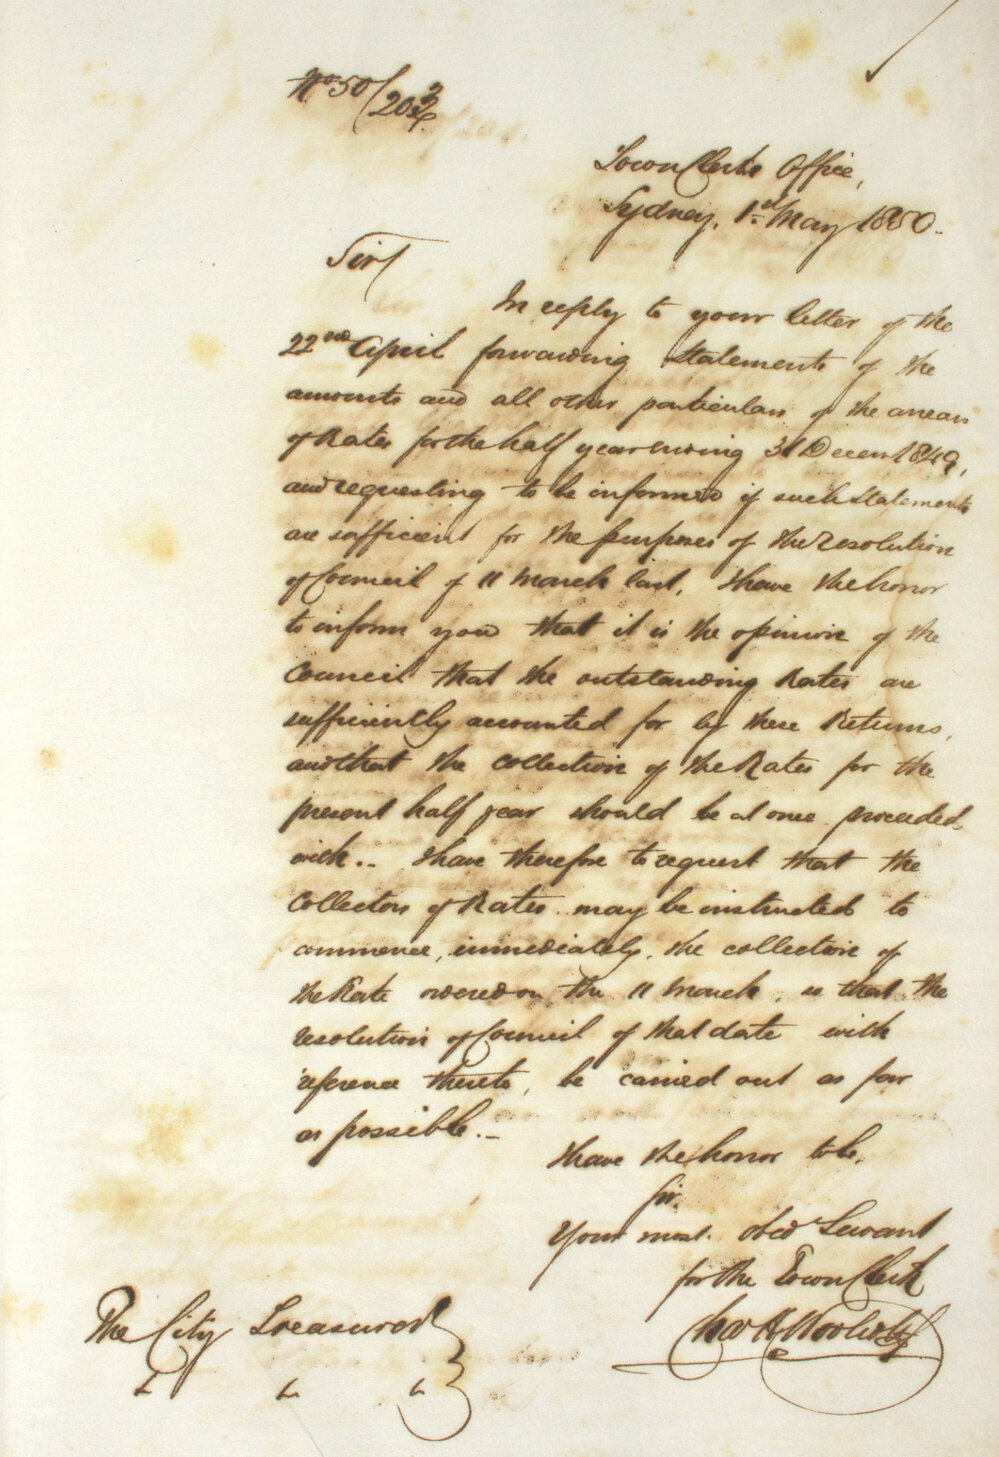 No 50/202
Town Clerks Office,
Sydney, 1st May 1850.
Sir/
In reply to your letter of the
22nd April forwarding Statements of the
amounts and all other particulars of the arrears
of Rates for the half year ending 31 Decem 1849,
and requesting to be informed if such Statements
are sufficient for the purposes of the resolution
of Council of 11 March last, I have the honor
to inform you that it is the opinion of the
Council that the outstanding Rates are
sufficiently accounted for by these Returns,
and that the collection of the Rates for the
present half year should be at once proceeded
with.. I have therefore to request that the
Collectors of Rates may be instructed to
commence, immediately, the collection of
the Rate ordered on the 11 March, so that the
resolution of Council of that date with
reference thereto, be carried out as far
as possible.-
I have the honor to be,
Sir,
Your most obed Servant
for the Town Clerk
Chas H Woolcott
The City Treasurer
" " "